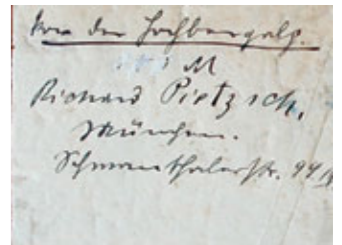 Von der Hochbergalp.
M
Richard Pietzsch.
München.
Schwanthalerstr.